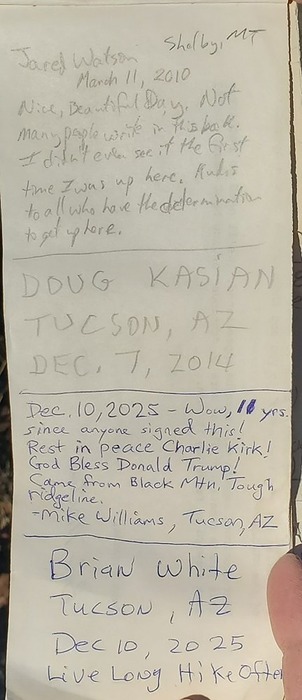 Jared Watson Shelby, MT
March 11, 2010
Nice, Beautiful Day. Not
many people write in this book.
I didn't even see it the first
time I was up here. Kudos
to all who have the determination
to get up here.
DOUG KASIAN
TUCSON, AZ
DEC. 7, 2014
Dec. 10, 2025 - Wow, 11 yrs.
since anyone signed this!
Rest in peace Charlie Kirk!
God Bless Donald Trump!
Came from Black Mtn. Tough
ridgeline.
-Mike Williams, Tucson, AZ
Brian White
Tucson, AZ
Dec 10, 2025
Live Long Hike Often